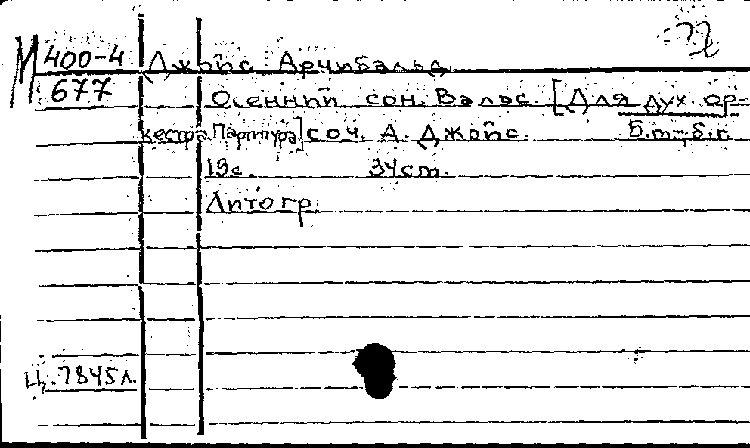 М 400-4 Джойс Арчибальд
677 Осенний сон. Вальс. [Для дух. ор-
кестра. Партитура] соч. А. Джойс. Б.м., б.г.
19с. 34 cm.
Литогр.
Ц. 7845л.